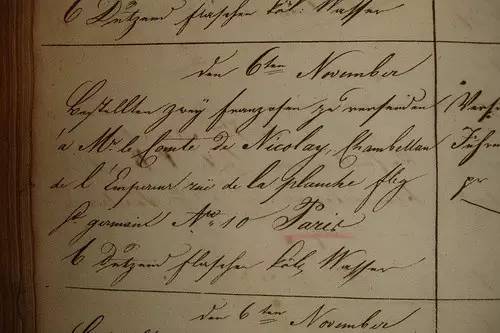 6 Dutzend flaschen Köl: Wasser
den 6ten November
Bestellten zwey franzosen pr versenden
à Mr. le Comte de Nicolay, Chambellan
de l'Empereur rüe de la planche fbg
St. germain Nro 10 Paris
6 Dutzend flaschen Köl. Wasser
den 6ten November